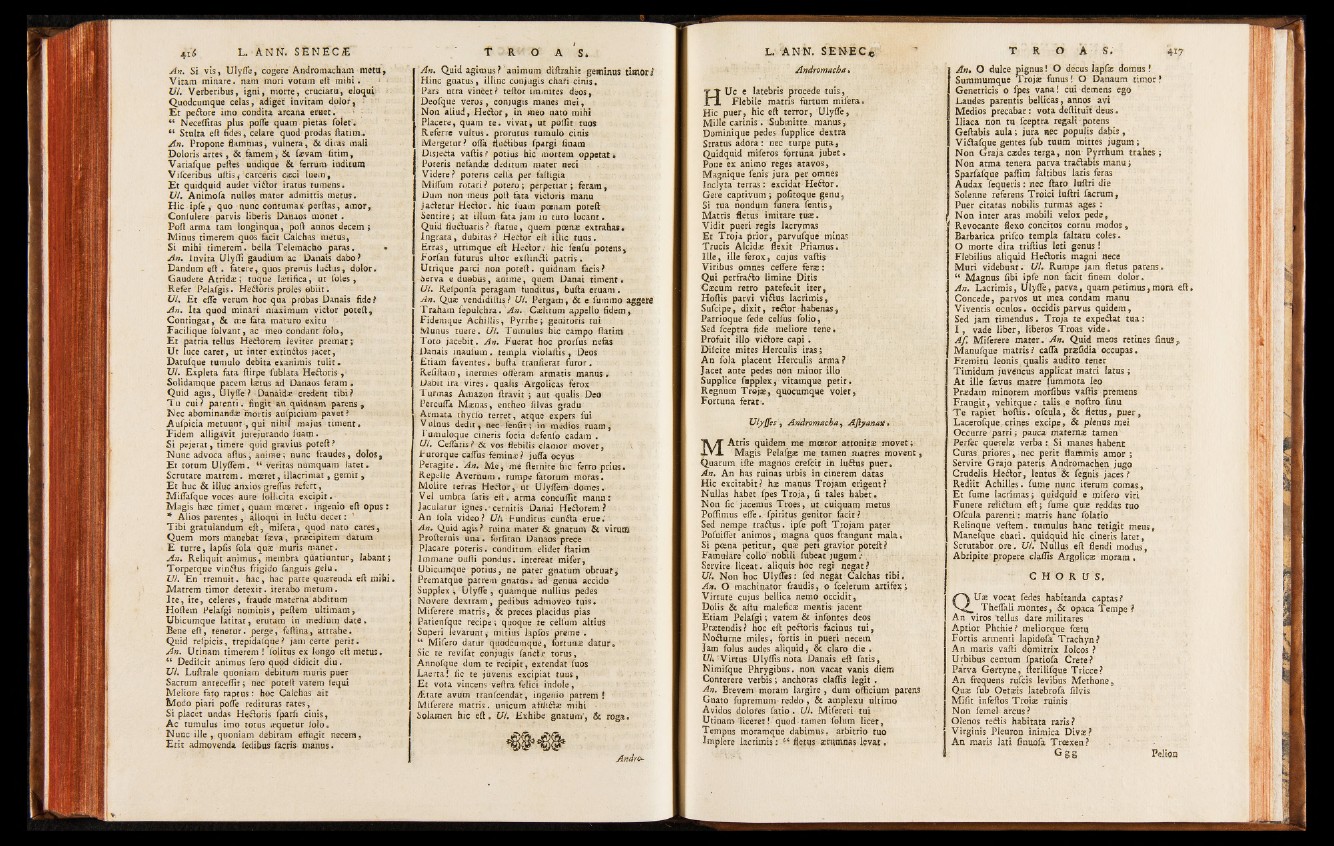 416 L. ANN. SENECÆ
An. Si vis, Ulyſſe, cogere Andromacham metu,
Vitam minare. nam mori votum eſt mihi.
Ul. Verberibus, igni, morte, cruciatu, eloqui
Quodcumque celas, adiget invitam dolor,
Et pectore imo condita arcana eruet.
“ Neceſſitas plus poſſe quam pietas ſolet.
“ Stulta eſt fides, celare quod prodas ſtatim.
An. Propone flammas, vulnera, & diras mali
Doloris artes, & famem, & ſævam ſitim,
Variaſque peſtes undique & ferrum inditum
Viſceribus uſtis, carceris cæci luem,
Et quidquid audet victor iratus tumens.
Ul. Animoſa nullos mater admittis metus.
Hic ipſe, quo nunc contumax perſtas, amor,
Conſulere parvis liberis Danaos monet.
Poſt arma tam longinqua, poſt annos decem;
Minus timerem quos facit Calchas metus,
Si mihi timerem. bella Telemacho paras.
An. Invita Ulyſſi gaudium ac Danais dabo?
Dandum eſt. fatere, quos premis luctus, dolor.
Gaudete Atridæ; tuque lætifica, ut ſoles,
Refer Pelaſgis. Hectoris proles obiit.
Ul. Et eſſe verum hoc qua probas Danais fide?
An. Ita quod minari maximum victor poteſt,
Contingat, & me fata maturo exitu
Facilique ſolvant, ac meo condant ſolo,
Et patria tellus Hectorem leviter premat;
Ut luce caret, ut inter extinctos jacet,
Datuſque tumulo debita exanimis tulit.
Ul. Expleta fata ſtirpe ſublata Hectoris,
Solidamque pacem lætus ad Danaos feram.
Quid agis, Ulyſſe? Danaidæ credent tibi?
Tu cui? parenti. fingit an quidnam parens,
Nec abominandæ mortis auſpicium pavet?
Auſpicia metuunt, qui nihil majus timent.
Fidem alligavit jurejurando ſuam.
Si pejerat, timere quid gravius poteſt?
Nunc advoca aſtus, anime; nunc fraudes, dolos,
Et totum Ulyſſem. “ veritas numquam latet.
Scrutare matrem. mœret, illacrimat, gemit,
Et huc & illuc anxios greſſus refert,
Miſſaſque voces aure ſollicita excipit.
Magis hæc timet, quam mœret. ingenio eſt opus:
* Alios parentes, alloqui in luctu decet:
Tibi gratulandum eſt, miſera, quod nato cares,
Quem mors manebat ſæva, præcipitem datum
E turre, lapſis ſola quæ muris manet.
An. Reliquit animus, membra quatiuntur, labant;
Torpetque vinctus frigido ſanguis gelu.
Ul. En tremuit. hac, hac parte quærenda eſt mihi.
Matrem timor detexit. iterabo metum.
Ite, ite, celeres, fraude materna abditum
Hoſtem Pelaſgi nominis, peſtem ultimam,
Ubicumque latitat, erutam in medium date.
Bene eſt, tenetur. perge, feſtina, attrahe.
Quid reſpicis, trepidaſque? jam certe perit.
An. Utinam timerem! ſolitus ex longo eſt metus.
“ Dedilcit animus ſero quod didicit diu.
Ul. Luſtrale quoniam debitum muris puer
Sacrum anteceſſit; nec poteſt vatem ſequi
Meliore fato raptus: hoc Calchas ait
Modo piari poſſe redituras rates,
Si placet undas Hectoris ſparſi cinis,
Ac tumulus imo totus æquetur ſolo.
Nunc ille, quoniam debitam effugit necem,
Erit admovenda ſedibus ſacris manus.
T R O A S.
An. Quid agimus? animum diſtrahit geminus timor:
Hinc gnatus, illinc conjugis chari cinis.
Pars utra vincet? teſtor immites deos,
Deoſque veros, conjugis manes mei,
Non aliud, Hector, in meo nato mihi
Placere, quam te. vivat, ut poſſit tuos
Referre vultus. prorutus tumulo cinis
Mergetur? oſſa fluctibus ſpargi ſinam
Disjecta vaſtis? potius hic mortem oppetat.
Poteris nefandæ deditum mater neci
Videre? poteris celſa per faſtigia
Miſſum rotari? potero; perpetiar; feram,
Dum non meus poſt fata victoris manu
Jactetur Hector. hic ſuam pœnam poteſt
Sentire; at illum fata jam in tuto locant.
Quid fluctuaris? ſtatue, quem pœnæ extrahas.
Ingrata, dubitas? Hector eſt illic tuus.
Erras, utrimque eſt Hector: hic ſenſu potens,
Forſan futurus ultor exſtincti patris.
Utrique parci non poteſt. quidnam facis?
Serva e duobus, anime, quem Danai timent.
Ul. Reſponſa peragam funditus, buſta eruam.
An. Quæ vendidiſtis? Ul. Pergam, & e ſummo aggere
Traham ſepulchra. An. Cælitum appello fidem,
Fidemque Achillis, Pyrrhe; genitoris tui
Munus tuere. Ul. Tumulus hic campo ſtatim
Toto jacebit. An. Fuerat hoc prorſus nefas
Danais inauſum. templa violaſtis, Deos
Etiam faventes. buſta tranſierat furor.
Reſiſtam, inermes offeram armatis manus.
Dabit ira vires. qualis Argolicas ferox
Turmas Amazon ſtravit; aut qualis Deo
Percuſſa Mænas, entheo ſilvas gradu
Armata thyrſo terret, atque expers ſui
Vulnus dedit, nec ſenſit; in medios ruam,
Tumuloque cineris ſocia defenſo cadam.
Ul. Ceſſatis? & vos flebilis clamor movet,
Furorque caſſus feminæ? juſſa ocyus
Peragite. An. Me, me ſternite hic ferro prius.
Repelle Avernum. rumpe fatorum moras.
Molire terras Hector, ut Ulyſſem domes.
Vel umbra ſatis eſt. arma concuſſit manu:
Jaculatur ignes. cernitis Danai Hectorem?
An ſola video? Ul. Funditus cuncta erue.
An. Quid agis? ruina mater & gnatum & virum
Proſternis una. forſitan Danaos prece
Placare poteris. conditum elidet ſtatim
Immane buſti pondus. intereat miſer,
Ubicumque potius, ne pater gnatum obruat,
Prematque patrem gnatus. ad genua accido
Supplex, Ulyſſe, quamque nullius pedes
Novere dextram, pedibus admoveo tuis.
Miſerere matris, & preces placidus pias
Patienſque recipe; quoque te celſum altius
Superi levarunt, mitius lapſos preme.
“ Miſero datur quodcumque, fortunæ datur.
Sic te reviſat conjugis ſanctæ torus,
Annoſque dum te recipit, extendat ſuos
Laerta! ſic te juvenis excipiat tuus,
Et vota vincens veſtra felici indole,
Ætate avum tranſcendat, ingenio patrem!
Miſerere matris. unicum afflictæ mihi
Solamen hic eſt. Ul. Exhibe gnatum, & roga.
Andro-
L. ANN. SENECÆ
Andromacha.
HUc e latebris procede tuis,
Flebile matris furtum miſera.
Hic puer, hic eſt terror, Ulyſſe,
Mille carinis. Submitte manus,
Dominique pedes ſupplice dextra
Stratus adora: nec turpe puta,
Quidquid miſeros fortuna jubet.
Pone ex animo reges atavos,
Magnique ſenis jura per omnes
Inclyta terras: excidat Hector.
Gere captivum; poſitoque genu,
Si tua nondum funera ſentis,
Matris fletus imitare tuæ.
Vidit pueri regis lacrymas
Et Troja prior, parvuſque minas
Trucis Alcidæ flexit Priamus.
Ille, ille ferox, cujus vaſtis
Viribus omnes ceſſere feræ:
Qui perfracto limine Ditis
Cæcum retro patefecit iter,
Hoſtis parvi victus lacrimis,
Suſcipe, dixit, rector habenas,
Patrioque ſede celſus ſolio,
Sed ſceptra fide meliore tene.
Profuit illo victore capi.
Diſcite mites Herculis iras;
An ſola placent Herculis arma?
Jacet ante pedes non minor illo
Supplice ſupplex, vitamque petit.
Regnum Trojæ, quocumque volet,
Fortuna ferat.
Ulyſſes, Andromacha, Aſtyanax.
MAtris quidem me mœror attonitæ movet;
Magis Pelaſgæ me tamen matres movent,
Quarum iſte magnos creſcit in luctus puer.
An. An has ruinas urbis in cinerem datas
Hic excitabit? hæ manus Trojam erigent?
Nullas habet ſpes Troja, ſi tales habet.
Non ſic jacemus Troes, ut cuiquam metus
Poſſimus eſſe. ſpiritus genitor facit?
Sed nempe tractus. ipſe poſt Trojam pater
Poſuiſſet animos, magna quos frangunt mala.
Si pœna petitur, quæ peti gravior poteſt?
Famulare collo nobili ſubeat jugum:
Servire liceat. aliquis hoc regi negat?
Ul. Non hoc Ulyſſes: ſed negat Calchas tibi.
An. O machinator fraudis, o ſcelerum artifex;
Virtute cujus bellica nemo occidit,
Dolis & aſtu maleficæ mentis jacent
Etiam Pelaſgi; vatem & inſontes deos
Prætendis? hoc eſt pectoris facinus tui,
Nocturne miles, fortis in pueri necem
Jam ſolus audes aliquid, & claro die.
Ul. Virtus Ulyſſis nota Danais eſt ſatis,
Nimiſque Phrygibus. non vacat vanis diem
Conterere verbis; anchoras claſſis legit.
An. Brevem moram largire, dum officium parens
Gnato ſupremum reddo, & amplexu ultimo
Avidos dolores ſatio. Ul. Miſereri tui
Utinam liceret! quod tamen ſolum licet,
Tempus moramque dabimus. arbitrio tuo
Implere lacrimis: “ fletus ærumnas levat.
T R O A S. 417
An. O dulce pignus! O decus lapſæ domus!
Summumque Trojæ funus! O Danaum timor!
Genetricis o ſpes vana! cui demens ego
Laudes parentis bellicas, annos avi
Medios precabar: vota deſtituit deus.
Iliaca non tu ſceptra regali potens
Geſtabis aula; jura nec populis dabis,
Victaſque gentes ſub tuum mittes jugum;
Non Graja cædes terga, non Pyrrhum trahes;
Non arma tenera parva tractabis manu;
Sparſaſque paſſim ſaltibus latis feras
Audax ſequeris: nec ſtato luſtri die
Solenne referens Troici luſtri ſacrum,
Puer citatas nobilis turmas ages:
Non inter aras mobili velox pede,
Revocante flexo concitos cornu modos,
Barbarica priſco templa ſaltatu coles.
O morte dira triſtius leti genus!
Flebilius aliquid Hectoris magni nece
Muri videbunt. Ul. Rumpe jam fletus parens.
“ Magnus ſibi ipſe non facit finem dolor.
An. Lacrimis, Ulyſſe, parva, quam petimus, mora eſt.
Concede, parvos ut mea condam manu
Viventis oculos. occidis parvus quidem,
Sed jam timendus. Troja te expectat tua:
I, vade liber, liberos Troas vide.
Aſ. Miſerere mater. An. Quid meos retines ſinus,
Manuſque matris? caſſa præſidia occupas.
Fremitu leonis qualis audito tener
Timidum juvencus applicat matri latus;
At ille ſævus matre ſummota leo
Prædam minorem morſibus vaſtis premens
Frangit, vehitque: talis e noſtro ſinu
Te rapiet hoſtis. oſcula, & fletus, puer,
Laceroſque crines excipe, & plenus mei
Occurre patri; pauca maternæ tamen
Perfer querelæ verba: Si manes habent
Curas priores, nec perit flammis amor;
Servire Grajo pateris Andromachen jugo
Crudelis Hector, lentus & ſegnis jaces?
Rediit Achilles. ſume nunc iterum comas,
Et ſume lacrimas; quidquid e miſero viri
Funere relictum eſt; ſume quæ reddas tuo
Oſcula parenti: matris hanc ſolatio
Relinque veſtem. tumulus hanc tetigit meus,
Maneſque chari. quidquid hic cineris latet,
Scrutabor ore. Ul. Nullus eſt flendi modus,
Abripite propere claſſis Argolicæ moram.
C H O R U S.
QUæ vocat ſedes habitanda captas?
Theſſali montes, & opaca Tempe?
An viros tellus dare militares
Aptior Phthie? meliorque fœtu
Fortis armenti lapidoſa Trachyn?
An maris vaſti domitrix Iolcos?
Urbibus centum ſpatioſa Crete?
Parva Gortyne, ſteriliſque Tricce?
An frequens ruſcis levibus Methone,
Quæ ſub Oetæis latebroſa ſilvis
Miſit infeſtos Trojæ ruinis
Non ſemel arcus?
Olenos tectis habitata raris?
Virginis Pleuron inimica Divæ?
An maris lati ſinuoſa Trœzen?
Ggg Pelion